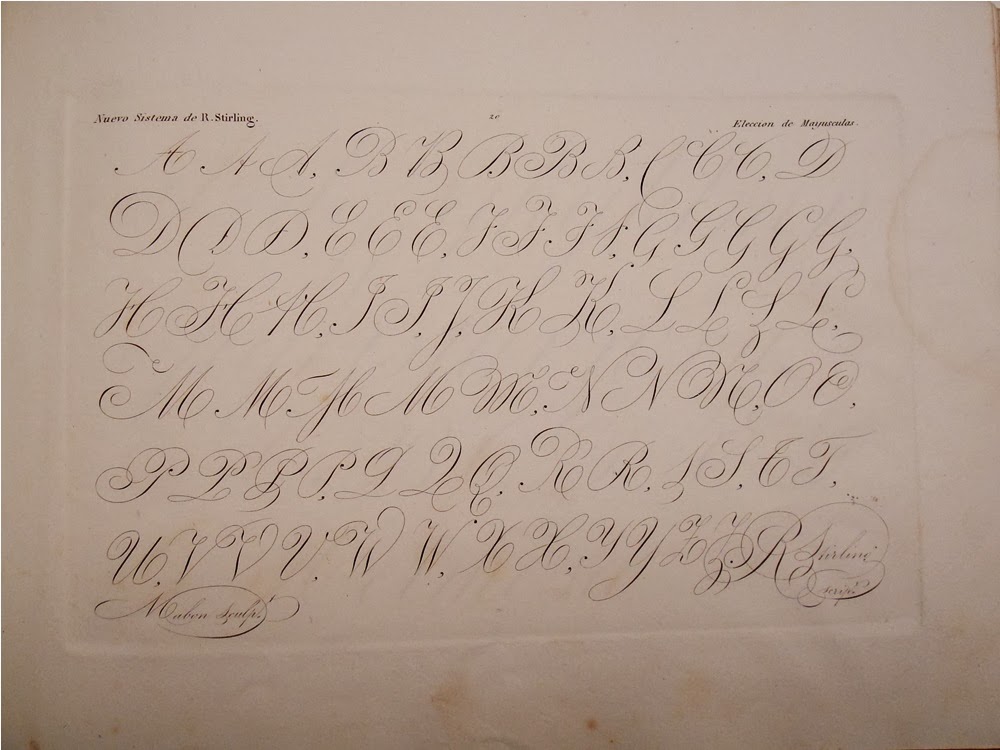 Nuevo Sistema de R. Stirling. 20 Eleccion de Mayusculas.
A A A, B B B B B, C C C, D
D D D D, E E E, F F F F, G G G G G,
H H H, I I, J, K K, L L L L,
M M M M M, N N N, O O,
P P P P, Q Q Q, R R, S S, T T,
U, V V V, W W, X X, Y Y Z Z, R Stirling
scrip.t
Mabon Sculp.t